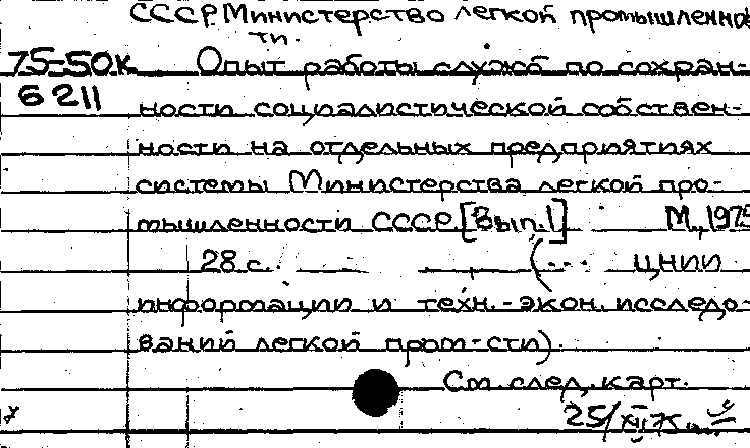 СССР. Министерство легкой промышленно
ти.
75-50к Опыт работы служб по сохран-
6211 ности социалистической собствен-
ности на отдельных предприятиях
системы Министерства легкой про-
мышленности СССР. [Вып. 1] М., 1975
28 с. (... ЦНИИ
информации и техн.-экон. исследо-
ваний легкой пром-сти).
См. след. карт.
25/XII 75